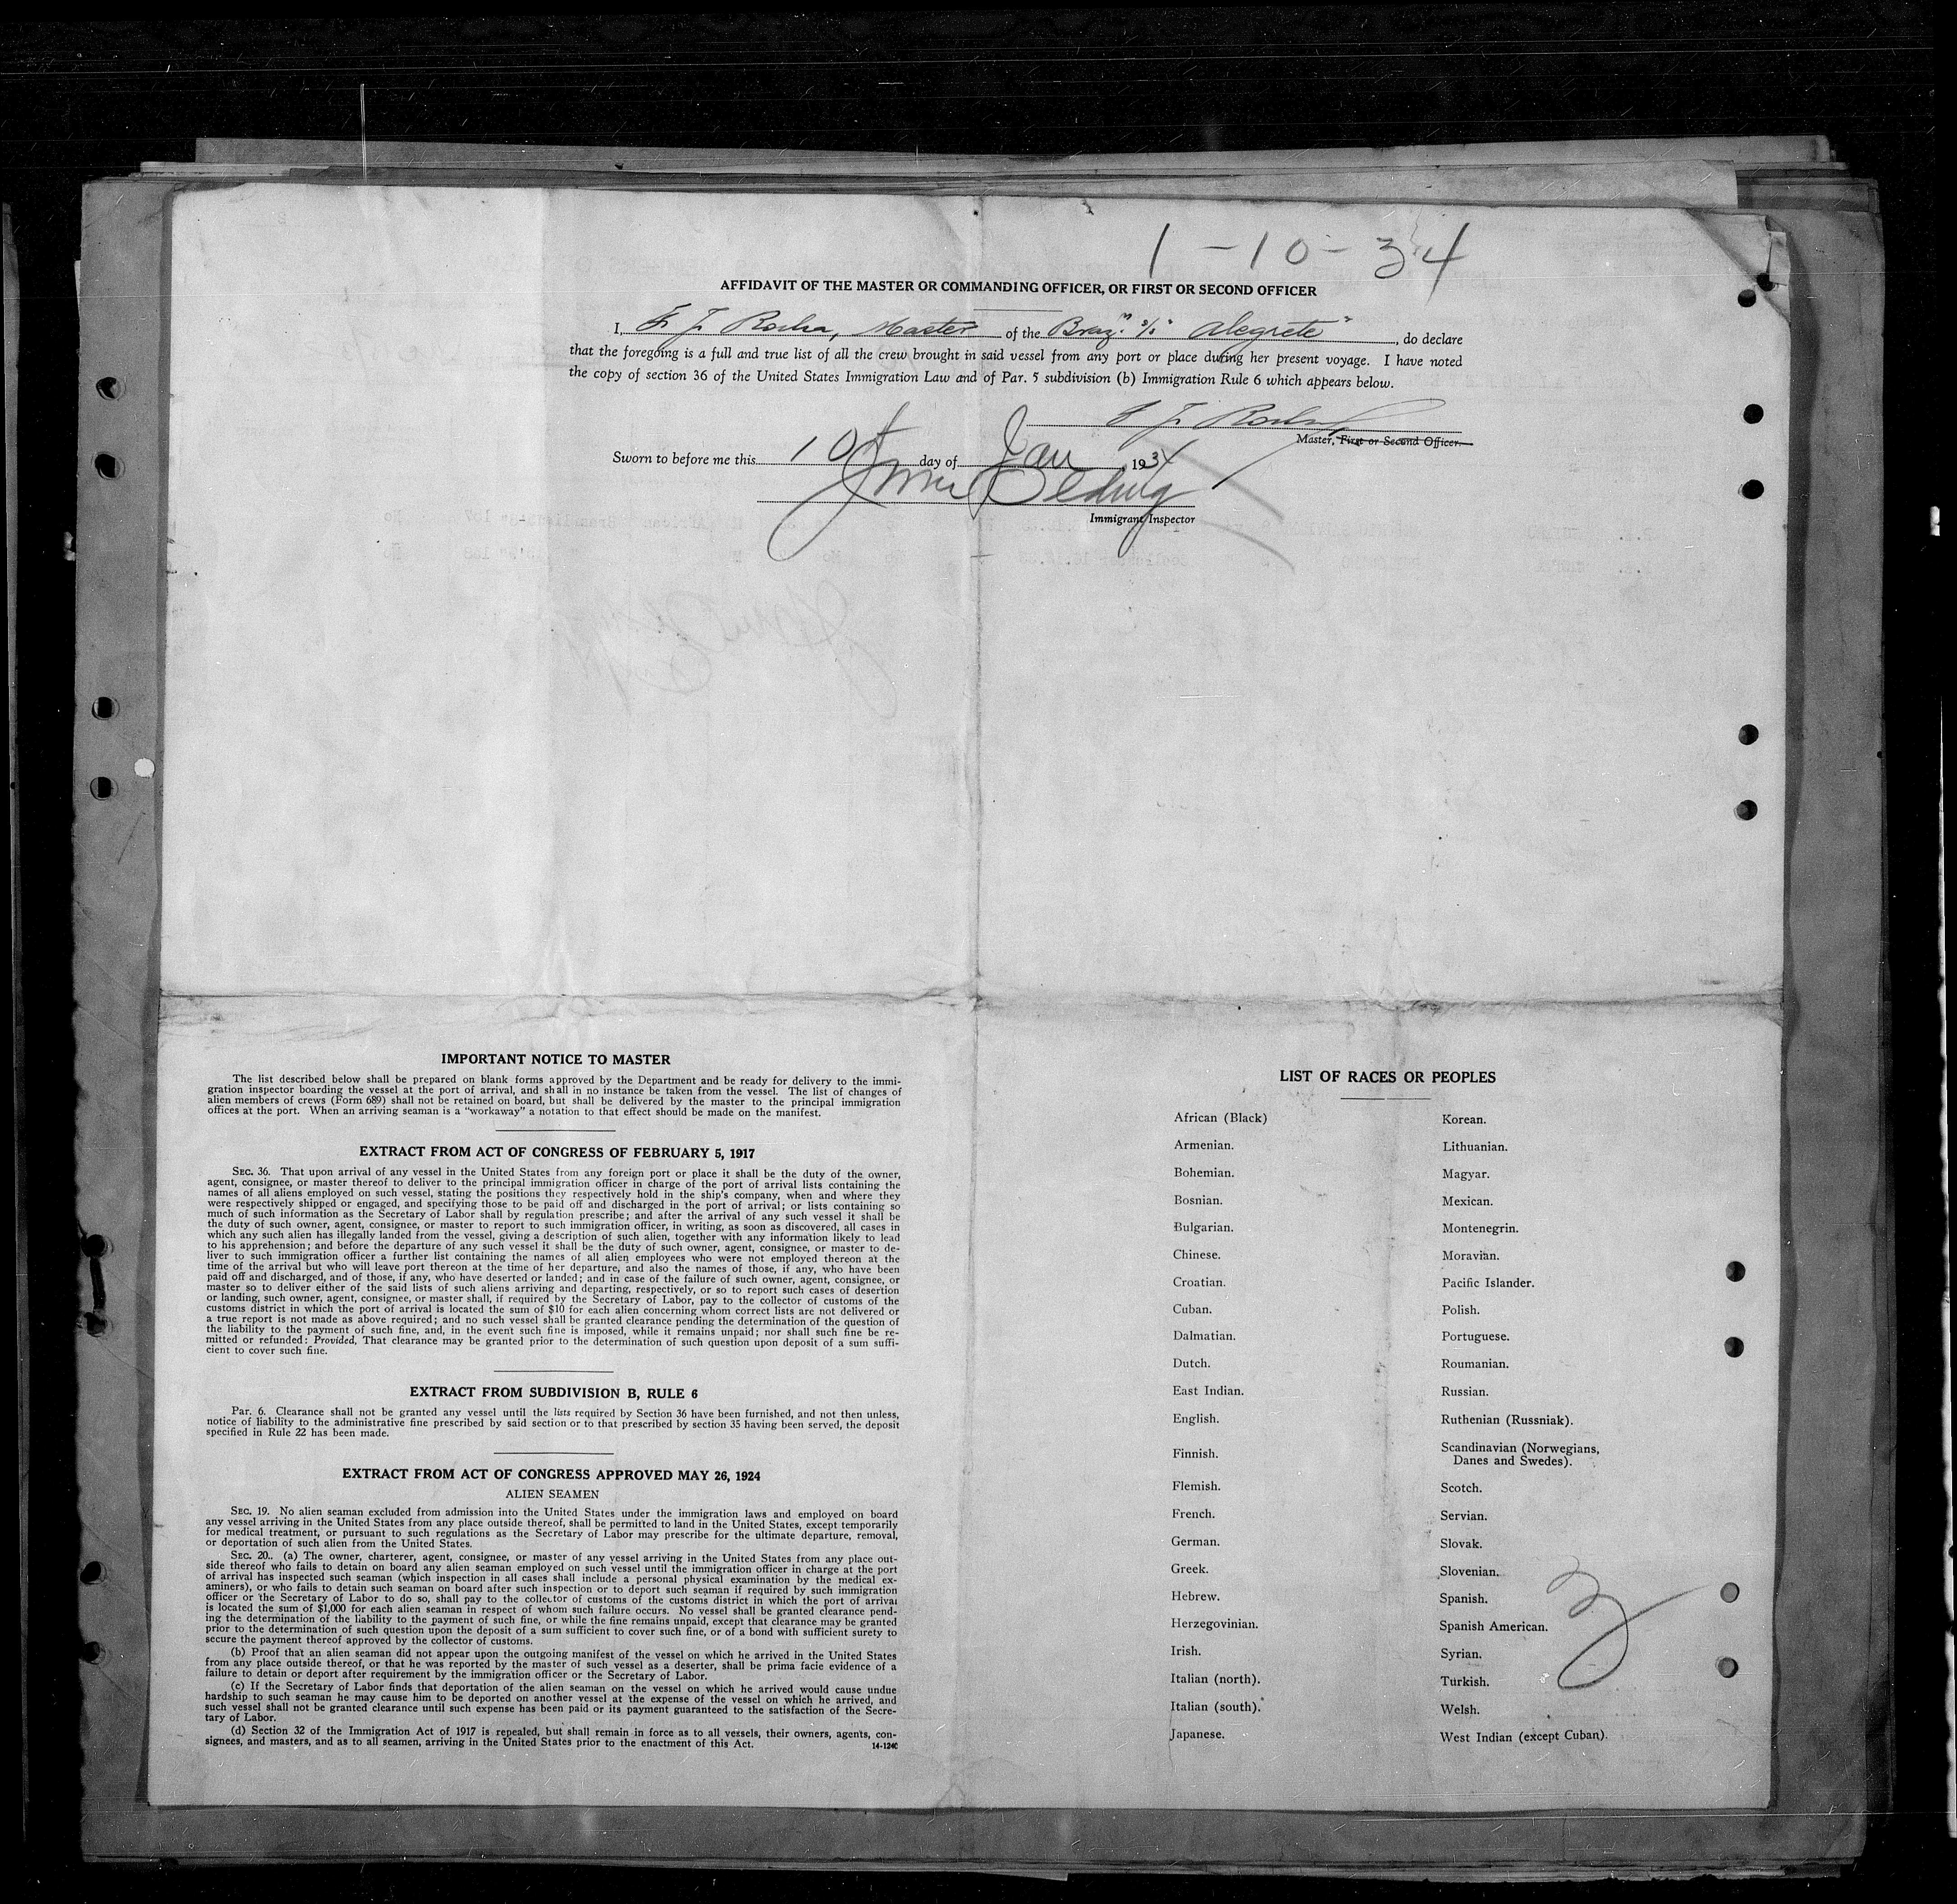 1-10-34
AFFIDAVIT OF THE MASTER OR COMMANDING OFFICER, OR FIRST OR SECOND OFFICER
I, F. J. Rocha, Master of the Braz. s/s "Alegrete", do declare
that the foregoing is a full and true list of all the crew brought in said vessel from any port or place during her present voyage. I have noted
the copy of section 36 of the United States Immigration Law and of Par. 5 subdivision (b) Immigration Rule 6 which appears below.
F J. Rocha
Master, First or Second Officer.
Sworn to before me this 10th day of Jan, 1934
Immigrant Inspector
IMPORTANT NOTICE TO MASTER
The list described below shall be prepared on blank forms approved by the Department and be ready for delivery to the immi-
gration inspector boarding the vessel at the port of arrival, and shall in no instance be taken from the vessel. The list of changes of
alien members of crews (Form 689) shall not be retained on board, but shall be delivered by the master to the principal immigration
offices at the port. When an arriving seaman is a "workaway" a notation to that effect should be made on the manifest.
EXTRACT FROM ACT OF CONGRESS OF FEBRUARY 5, 1917
SEC. 36. That upon arrival of any vessel in the United States from any foreign port or place it shall be the duty of the owner,
agent, consignee, or master thereof to deliver to the principal immigration officer in charge of the port of arrival lists containing the
names of all aliens employed on such vessel, stating the positions they respectively hold in the ship's company, when and where they
were respectively shipped or engaged, and specifying those to be paid off and discharged in the port of arrival; or lists containing so
much of such information as the Secretary of Labor shall by regulation prescribe; and after the arrival of any such vessel it shall be
the duty of such owner, agent, consignee, or master to report to such immigration officer, in writing, as soon as discovered, all cases in
which any such alien has illegally landed from the vessel, giving a description of such alien, together with any information likely to lead
to his apprehension; and before the departure of any such vessel it shall be the duty of such owner, agent, consignee, or master to de-
liver to such immigration officer a further list containing the names of all alien employees who were not employed thereon at the
time of the arrival but who will leave port thereon at the time of her departure, and also the names of those, if any, who have been
paid off and discharged, and of those, if any, who have deserted or landed; and in case of the failure of such owner, agent, consignee, or
master so to deliver either of the said lists of such aliens arriving and departing, respectively, or so to report such cases of desertion
or landing, such owner, agent, consignee, or master shall, if required by the Secretary of Labor, pay to the collector of customs of the
customs district in which the port of arrival is located the sum of $10 for each alien concerning whom correct lists are not delivered or
a true report is not made as above required; and no such vessel shall be granted clearance pending the determination of the question of
the liability to the payment of such fine, and, in the event such fine is imposed, while it remains unpaid; nor shall such fine be re-
mitted or refunded: Provided, That clearance may be granted prior to the determination of such question upon deposit of a sum suffi-
cient to cover such fine.
EXTRACT FROM SUBDIVISION B, RULE 6
Par. 6. Clearance shall not be granted any vessel until the lists required by Section 36 have been furnished, and not then unless,
notice of liability to the administrative fine prescribed by said section or to that prescribed by section 35 having been served, the deposit
specified in Rule 22 has been made.
EXTRACT FROM ACT OF CONGRESS APPROVED MAY 26, 1924
ALIEN SEAMEN
SEC. 19. No alien seaman excluded from admission into the United States under the immigration laws and employed on board
any vessel arriving in the United States from any place outside thereof, shall be permitted to land in the United States, except temporarily
for medical treatment, or pursuant to such regulations as the Secretary of Labor may prescribe for the ultimate departure, removal,
or deportation of such alien from the United States.
SEC. 20.. (a) The owner, charterer, agent, consignee, or master of any vessel arriving in the United States from any place out-
side thereof who fails to detain on board any alien seaman employed on such vessel until the immigration officer in charge at the port
of arrival has inspected such seaman (which inspection in all cases shall include a personal physical examination by the medical ex-
aminers), or who fails to detain such seaman on board after such inspection or to deport such seaman if required by such immigration
officer or the Secretary of Labor to do so, shall pay to the collector of customs of the customs district in which the port of arrival
is located the sum of $1,000 for each alien seaman in respect of whom such failure occurs. No vessel shall be granted clearance pend-
ing the determination of the liability to the payment of such fine, or while the fine remains unpaid, except that clearance may be granted
prior to the determination of such question upon the deposit of a sum sufficient to cover such fine, or of a bond with sufficient surety to
secure the payment thereof approved by the collector of customs.
(b) Proof that an alien seaman did not appear upon the outgoing manifest of the vessel on which he arrived in the United States
from any place outside thereof, or that he was reported by the master of such vessel as a deserter, shall be prima facie evidence of a
failure to detain or deport after requirement by the immigration officer or the Secretary of Labor.
(c) If the Secretary of Labor finds that deportation of the alien seaman on the vessel on which he arrived would cause undue
hardship to such seaman he may cause him to be deported on another vessel at the expense of the vessel on which he arrived, and
such vessel shall not be granted clearance until such expense has been paid or its payment guaranteed to the satisfaction of the Secre-
tary of Labor.
(d) Section 32 of the Immigration Act of 1917 is repealed, but shall remain in force as to all vessels, their owners, agents, con-
signees, and masters, and as to all seamen, arriving in the United States prior to the enactment of this Act.
14-1240
LIST OF RACES OR PEOPLES
African (Black)
Armenian.
Bohemian.
Bosnian.
Bulgarian.
Chinese.
Croatian.
Cuban.
Dalmatian.
Dutch.
East Indian.
English.
Finnish.
Flemish.
French.
German.
Greek.
Hebrew.
Herzegovinian.
Irish.
Italian (north).
Italian (south).
Japanese.
Korean.
Lithuanian.
Magyar.
Mexican.
Montenegrin.
Moravian.
Pacific Islander.
Polish.
Portuguese.
Roumanian.
Russian.
Ruthenian (Russniak).
Scandinavian (Norwegians,
Danes and Swedes).
Scotch.
Servian.
Slovak.
Slovenian.
Spanish.
Spanish American.
Syrian.
Turkish.
Welsh.
West Indian (except Cuban).
3